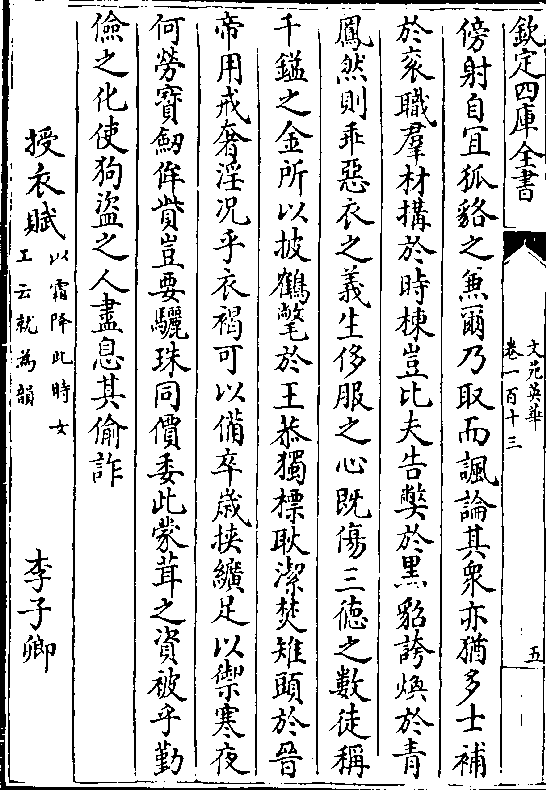 欽定四庫全書
文苑英華
卷一百十三
五
傍射自宜狐貉之無爾乃取而諷論其衆亦猶多士補
於衮職羣材搆於時棟豈比夫告獘於黒貂誇煥於青
鳳然則乖惡衣之義生侈服之心既傷三徳之數徒稱
千鎰之金所以披鶴氅於王恭獨標耿潔焚雉頭於晉
帝用戒奢淫况乎衣褐可以備卒歳挾纊足以禦寒夜
何勞寳劔侔貲豈要驪珠同價委此蒙茸之資被乎勤
儉之化使狗盗之人盡息其偷詐
授衣賦
以霜降此時女
工云就為韻
李子卿